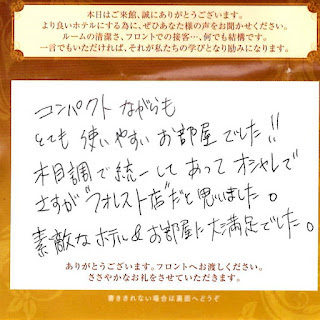 本日はご来館、誠にありがとうございます。
より良いホテルにする為に、ぜひあなた様の声をお聞かせください。
ルームの清潔さ、フロントでの接客…、何でも結構です。
一言でもいただければ、それが私たちの学びとなり励みになります。
コンパクトながらも
とても使いやすいお部屋でした!!
木目調で統一してあってオシャレで
さすが"フォレスト店"だと思いました。
素敵なホテル&お部屋に大満足でした。
ありがとうございます。フロントへお渡しください。
ささやかなお礼をさせていただきます。
書ききれない場合は裏面へどうぞ